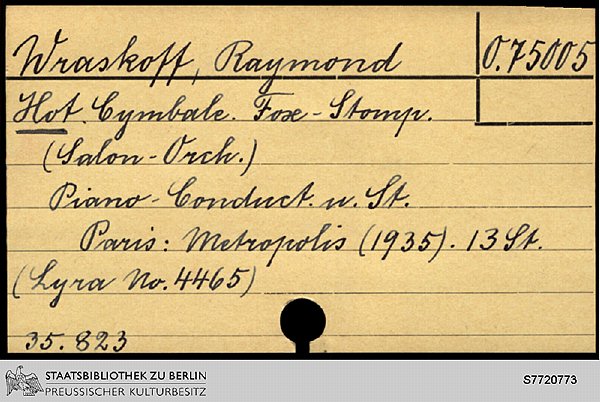 Wraskoff, Raymond
O.75005
Hot. Cymbale. Fox-Stomp.
(Salon-Orch.)
Piano-Conduct. u. St.
Paris: Metropolis (1935). 13 St.
(Lyra No. 4465)
35.823
STAATSBIBLIOTHEK ZU BERLIN
PREUSSISCHER KULTURBESITZ
S7720773